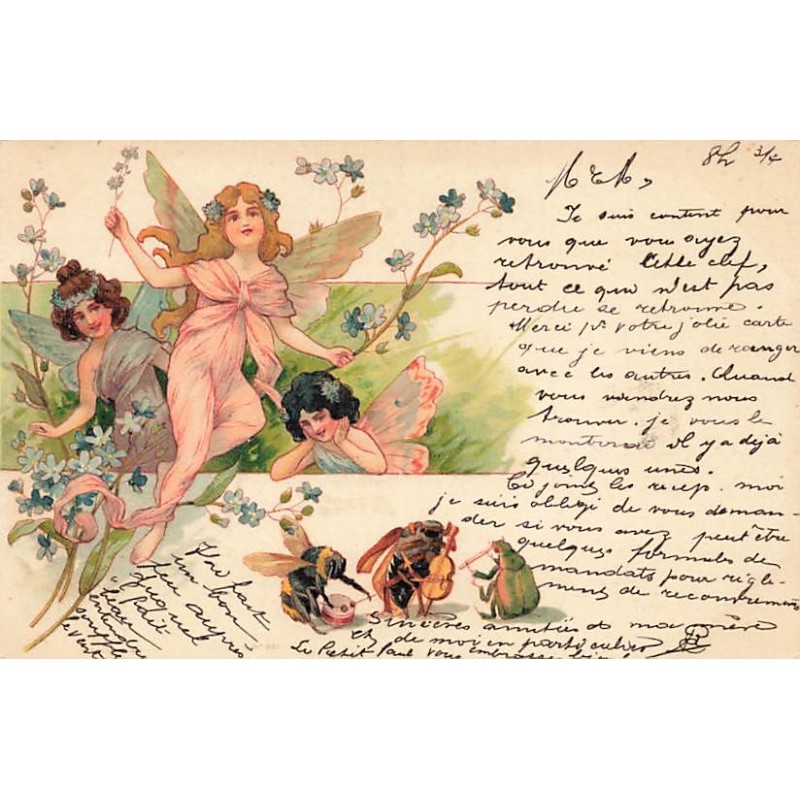 8h 3/4
Je suis content pour
vous que vous ayez
retrouvé cette clef,
tout ce qui n'est pas
perdu se retrouve.
Merci pr votre jolie carte
que je viens de ranger
avec les autres. Quand
vous viendrez nous
trouver. je vous le
montrerai il y a déjà
quelques unes.
Ci joint les récep. moi
je suis obligé de vous deman-
der si vous avez peut être
quelques formules de
mandats pour règle-
ments de recouvrements
Sincères amitiés de ma mère
et de moi en particulier
Le Petit Paul vous embrasse bien
fait
un bon
feu auprès
duquel
il fait
beau
entendre
souffler
le vent